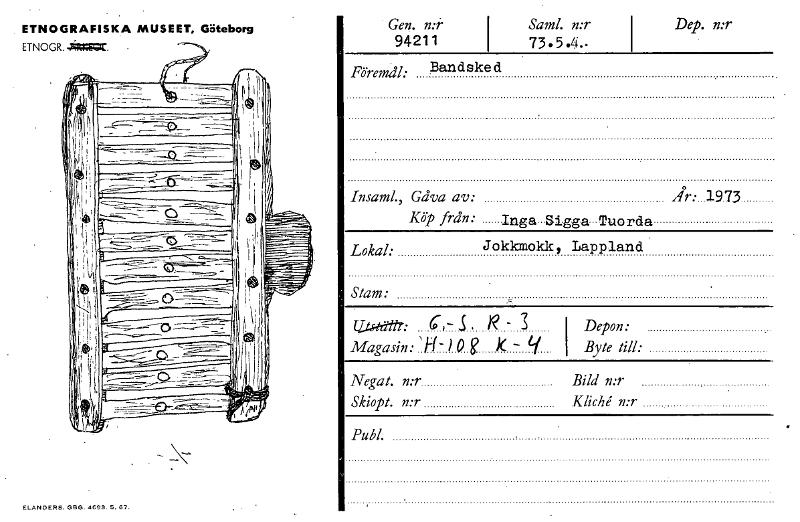 ETNOGRAFISKA MUSEET, Göteborg
ETNOGR. ARKEOL.
Gen. n:r Saml. n:r Dep. n:r
94211 73.5.4.
Föremål: Bandsked
Insaml., Gåva av: År: 1973
Köp från: Inga Sigga Tuorda
Lokal: Jokkmokk, Lappland
Stam:
Utställt: G.-S. R-3 Depon:
Magasin: H-108 K-4 Byte till:
Negat. n:r Bild n:r
Skiopt. n:r Kliché n:r
Publ.
ELANDERS. GBG. 4693. 5. 67.